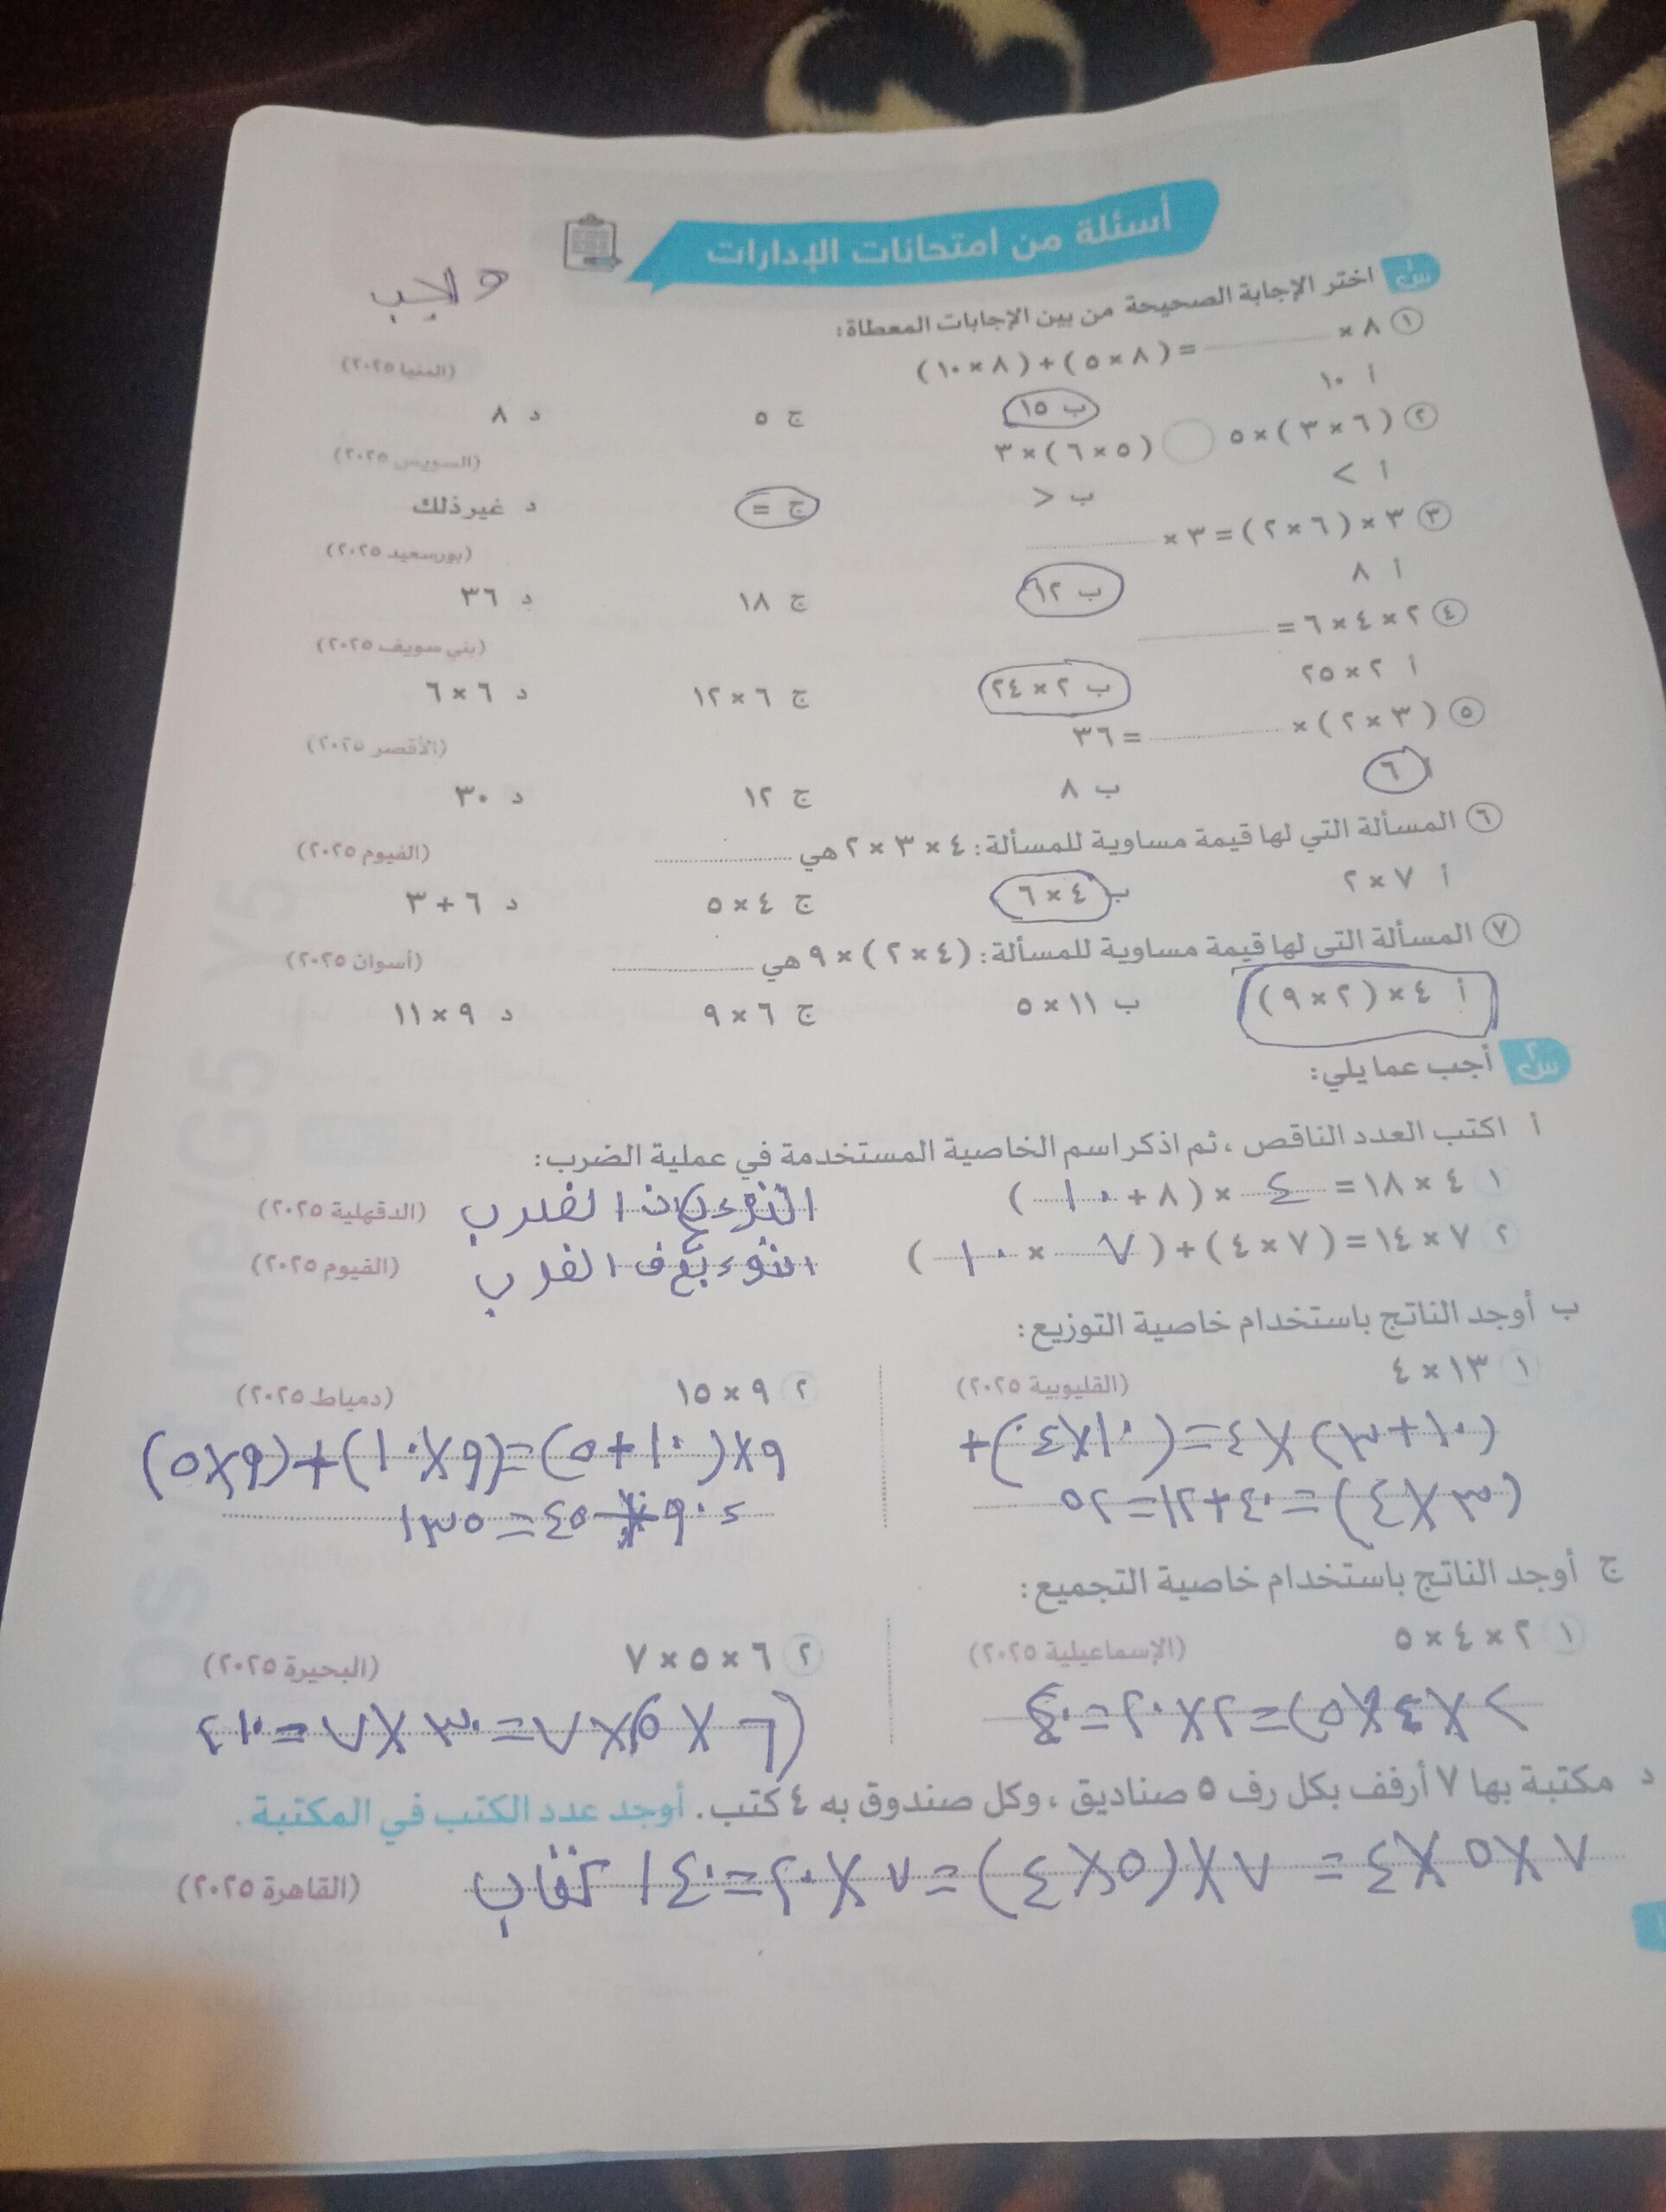 أسئلة من امتحانات الإدارات
واجب
س١ اختر الإجابة الصحيحة من بين الإجابات المعطاة:
١ ٨ × ........ = (٨ × ٥) + (٨ × ١٠) (المنيا ٢٠٢٥)
أ ١٠ ب ١٥ ج ٥ د ٨
٢ (٦ × ٣) × ٥ ◯ (٥ × ٦) × ٣ (السويس ٢٠٢٥)
أ > ب < ج = د غير ذلك
٣ ٣ × (٦ × ٢) = ٣ × ........ (بورسعيد ٢٠٢٥)
أ ٨ ب ١٢ ج ١٨ د ٣٦
٤ ٢ × ٤ × ٦ = ........ (بني سويف ٢٠٢٥)
أ ٢ × ٢٥ ب ٢ × ٢٤ ج ٦ × ١٢ د ٦ × ٦
٥ (٣ × ٢) × ........ = ٣٦ (الأقصر ٢٠٢٥)
أ ٦ ب ٨ ج ١٢ د ٣٠
٦ المسألة التي لها قيمة مساوية للمسألة: ٤ × ٣ × ٢ هي ........ (الفيوم ٢٠٢٥)
أ ٧ × ٢ ب ٤ × ٦ ج ٤ × ٥ د ٦ + ٣
٧ المسألة التي لها قيمة مساوية للمسألة: (٤ × ٢) × ٩ هي ........ (أسوان ٢٠٢٥)
أ ٤ × (٢ × ٩) ب ١١ × ٥ ج ٦ × ٩ د ٩ × ١١
س٢ أجب عما يلي:
أ اكتب العدد الناقص ، ثم اذكر اسم الخاصية المستخدمة في عملية الضرب:
١ ٤ × ١٨ = ٤ × (٨ + ١٠) الضرب (الدقهلية ٢٠٢٥)
٢ ٧ × ١٤ = (٧ × ٤) + (٧ × ١٠) (الفيوم ٢٠٢٥)
ب أوجد الناتج باستخدام خاصية التوزيع:
١ ١٣ × ٤ (القليوبية ٢٠٢٥)
(١٠+٣)×٤=(١٠×٤)+
(٣×٤)=٤٠+١٢=٥٢
٢ ٩ × ١٥ (دمياط ٢٠٢٥)
٩×(١٠+٥)=(٩×١٠)+(٩×٥)
= ٩٠+٤٥=١٣٥
ج أوجد الناتج باستخدام خاصية التجميع:
١ ٢ × ٤ × ٥ (الإسماعيلية ٢٠٢٥)
٢×(٤×٥)=٢×٢٠=٤٠
٢ ٦ × ٥ × ٧ (البحيرة ٢٠٢٥)
(٦×٥)×٧=٣٠×٧=٢١٠
د مكتبة بها ٧ أرفف بكل رف ٥ صناديق ، وكل صندوق به ٤ كتب. أوجد عدد الكتب في المكتبة.
٧×٥×٤ = ٧×(٥×٤)=٧×٢٠=١٤٠ كتاب (القاهرة ٢٠٢٥)